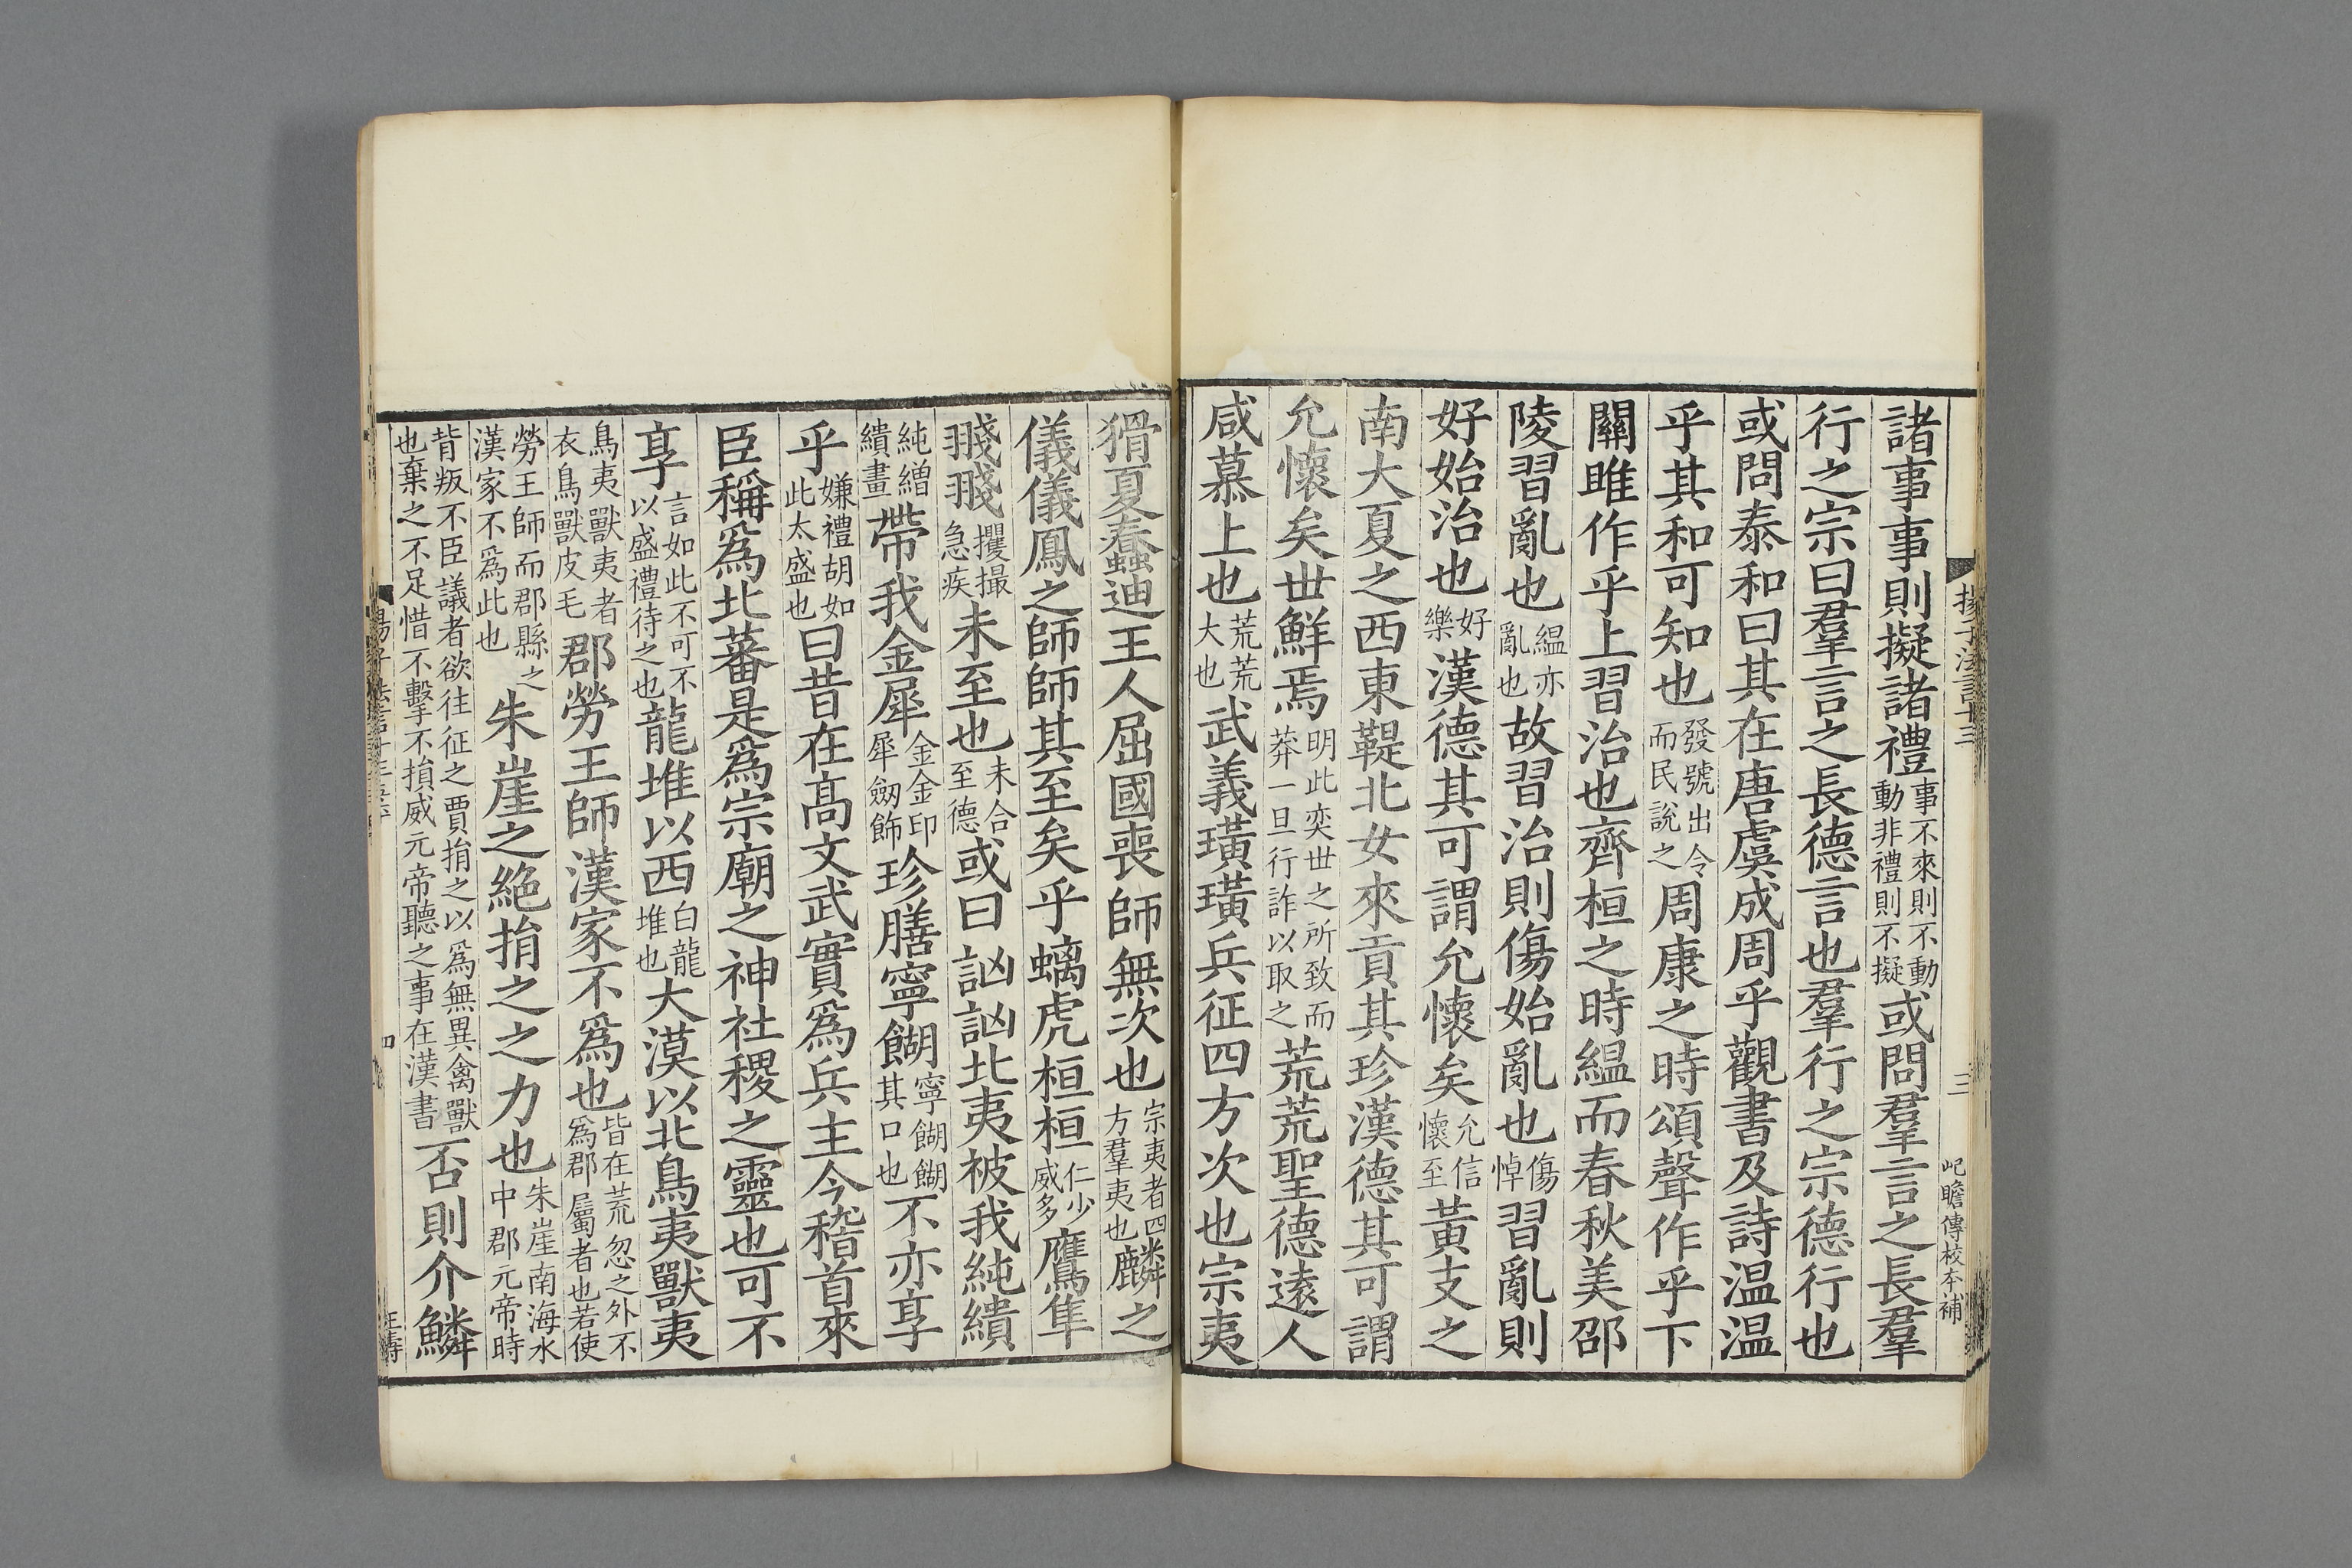 揚子法言十三
三
圮瞻傳校本補
諸事事則擬諸禮事不來則不動動非禮則不擬或問羣言之長羣
行之宗曰羣言之長德言也羣行之宗德行也
或問泰和曰其在唐虞成周乎觀書及詩温温
乎其和可知也發號出令而民說之周康之時頌聲作乎下
關雎作乎上習治也齊桓之時緼而春秋美邵
陵習亂也緼亦亂也故習治則傷始亂也傷悼習亂則
好始治也好樂漢德其可謂允懷矣允信懷至黃支之
南大夏之西東鞮北女來貢其珍漢德其可謂
允懷矣世鮮焉明此奕世之所致而莽一旦行詐以取之荒荒聖德遠人
咸慕上也荒荒大也武義璜璜兵征四方次也宗夷
猾夏蠢迪王人屈國喪師無次也宗夷者四方羣夷也麟之
儀儀鳳之師師其至矣乎螭虎桓桓仁少威多鷹隼
䎒䎒攫撮急疾未至也未合至德或曰訩訩北夷被我純繢
純繒繢畫帶我金犀金金印犀劒飾珍膳寧餬寧餬餬其口也不亦享
乎嫌禮胡如此太盛也曰昔在高文武實爲兵主今稽首來
臣稱爲北蕃是爲宗廟之神社稷之靈也可不
享言如此不可不以盛禮待之也龍堆以西白龍堆也大漠以北鳥夷獸夷
鳥夷獸夷者衣鳥獸皮毛郡勞王師漢家不爲也皆在荒忽之外不爲郡屬者也若使
勞王師而郡縣之漢家不爲此也朱崖之絶捐之之力也朱崖南海水中郡元帝時
背叛不臣議者欲往征之賈捐之以爲無異禽獸也棄之不足惜不擊不損威元帝聽之事在漢書否則介鱗
四